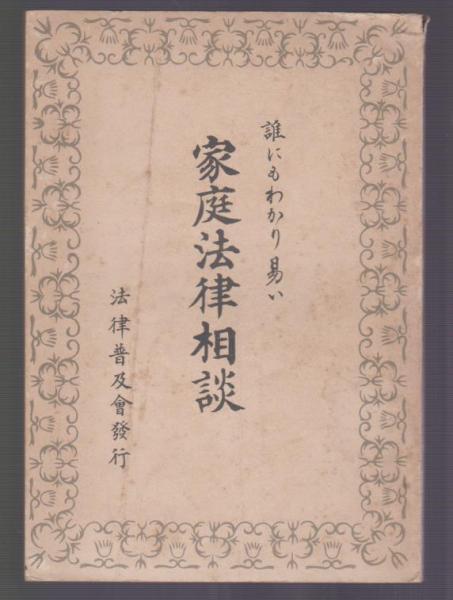 誰にもわかり易い
家庭法律相談
法律普及會發行